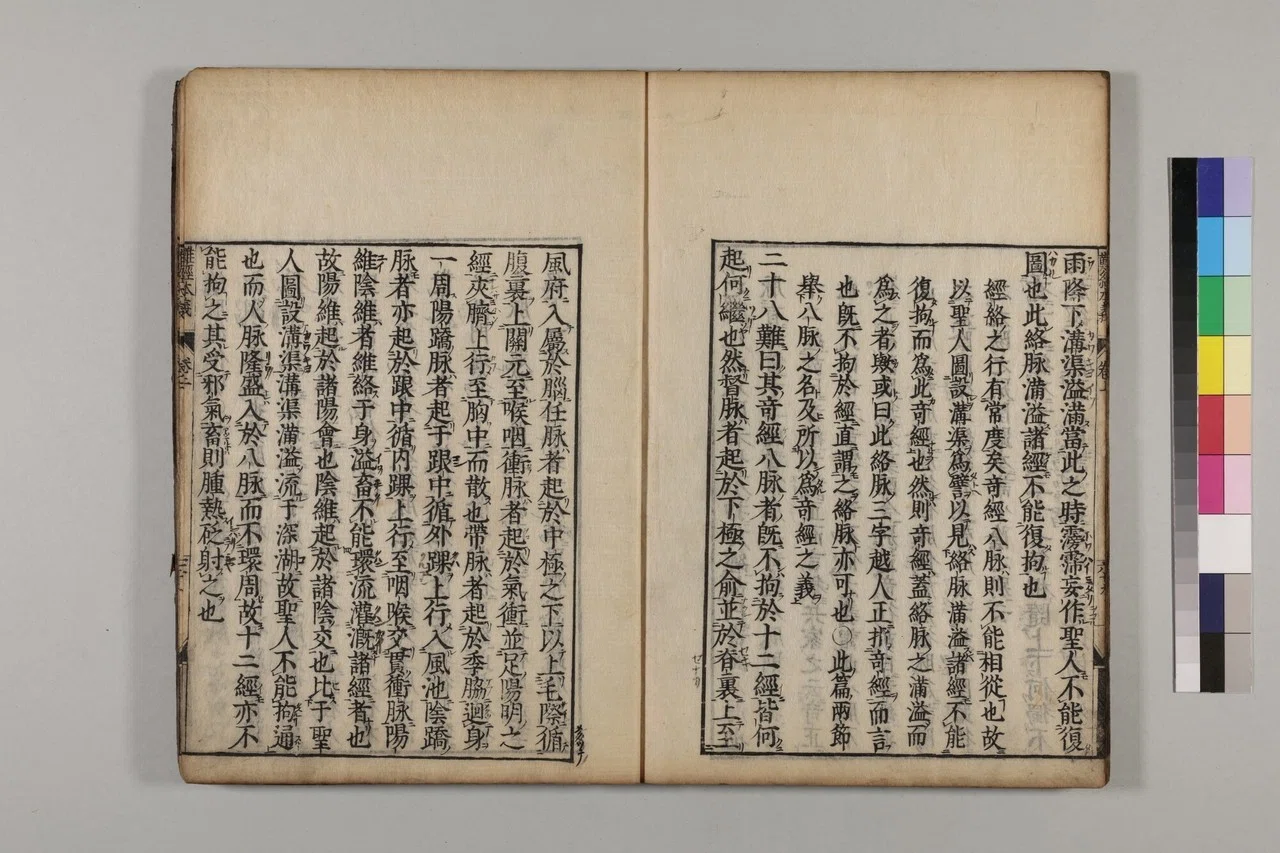 雨降下溝渠溢滿當此之時霶霈妄作聖人不能復
圖也此絡脉滿溢諸經不能復拘也
經絡之行有常度矣奇經八脉則不能相從也故
以聖人圖設溝渠爲譬以見絡脉滿溢諸經不能
復拘而爲此奇經也然則奇經蓋絡脉之滿溢而
爲之者歟或曰此絡脉三字越人正指奇經而言
也旣不拘於經直謂之絡脉亦可也〇此篇兩節
舉八脉之名及所以爲奇經之義
二十八難曰其奇經八脉者旣不拘於十二經皆何
起何繼也然督脉者起於下極之俞並於脊裏上至
風府入屬於腦任脉者起於中極之下以上毛際循
腹裏上關元至喉咽衝脉者起於氣衝並足陽明之
經夾臍上行至胸中而散也帶脉者起於季脇迴身
一周陽蹻脉者起于跟中循外踝上行入風池陰蹻
脉者亦起於跟中循内踝上行至咽喉交貫衝脉陽
維陰維者維絡于身溢畜不能環流灌漑諸經者也
故陽維起於諸陽會也陰維起於諸陰交也比于聖
人圖設溝渠溝渠滿溢流于深湖故聖人不能拘通
也而人脉隆盛入於八脉而不環周故十二經亦不
能拘之其受邪氣畜則腫熱砭射之也
難經本義 卷二